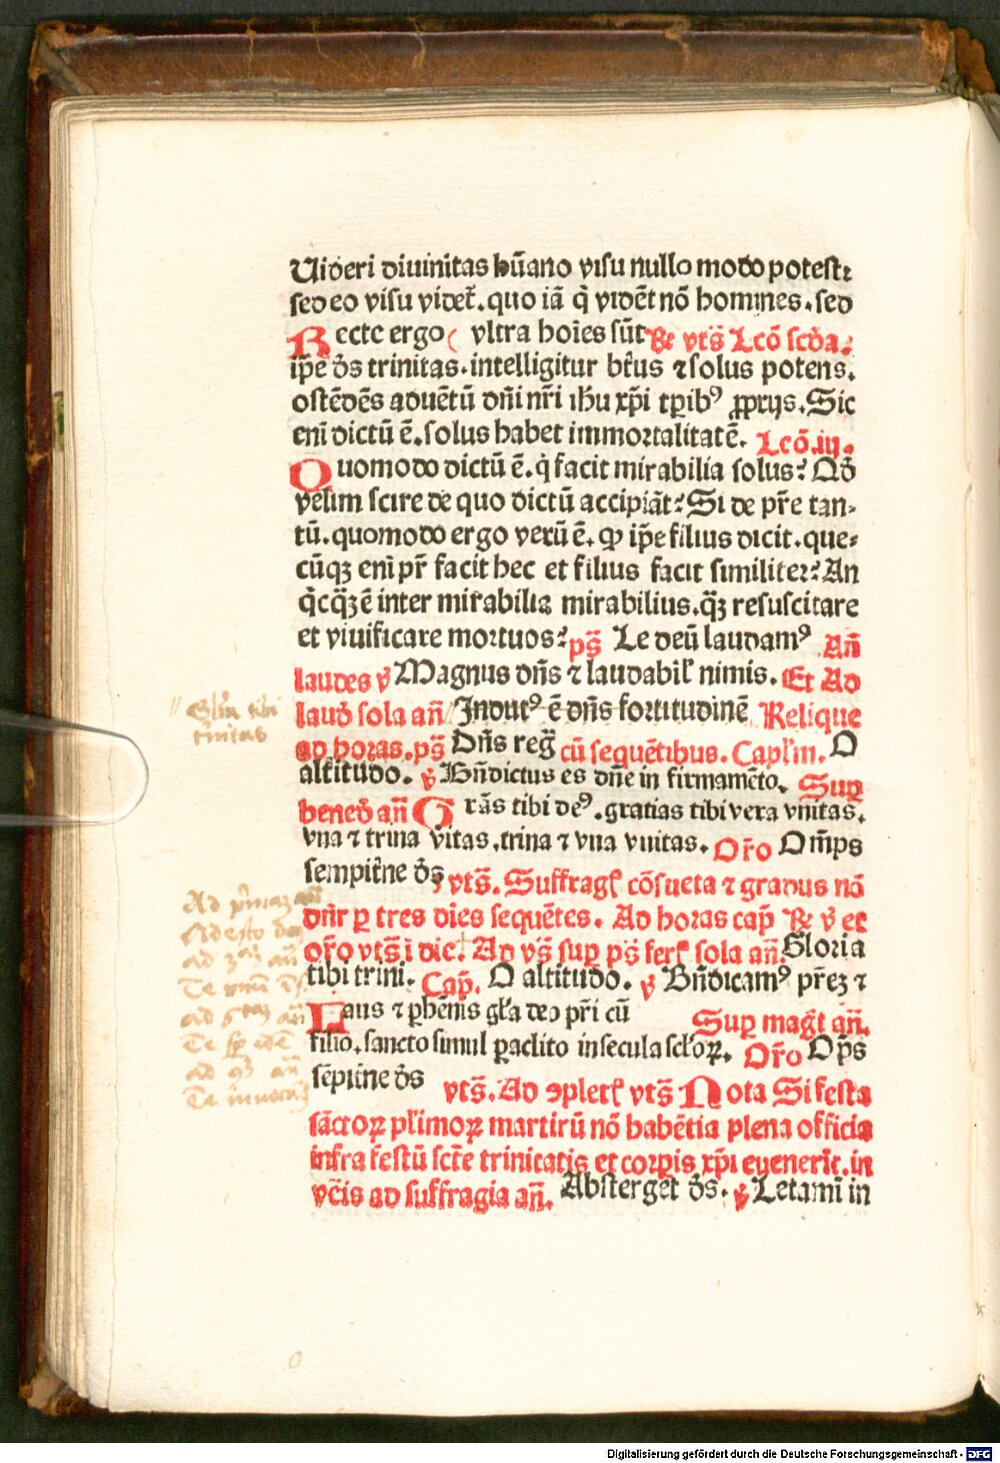 Uideri diuinitas hūano visu nullo modo potest:
sed eo visu videt̄. quo iā q̇ vidēt nō homines. sed
Recte ergo ( vltra hoīes sūt ℞ vts̄ Lcō scd̄a.
ip̄e d̄s trinitas. intelligitur bt̄us ⁊ solus potens.
ostēdēs aduētū dn̄i nr̄i ih̄u xp̄i tꝑibꝰ ꝓprijs. Sic
eni dictū ē. solus habet immortalitatē. Lcō. iij.
Quomodo dictū ē. q̇ facit mirabilia solus? Qd̄
velim scire de quo dictū accipiāt? Si de pr̄e tan-
tū. quomodo ergo verū ē. ꝙ ip̄e filius dicit. que-
cūqꝫ eni pr̄ facit hec et filius facit similiter? An
q̇cq̄ꝫ ē inter mirabilia mirabilius. q̄ꝫ resuscitare
et viuificare mortuos? ps̄ Te deū laudamꝰ An̄
laudes ℣ Magnus dn̄s ⁊ laudabil̛ nimis. Et Ad
laud̄ sola an̄ Indutꝰ ē dn̄s fortitudinē Relique
ad horas. ps̄ Dn̄s reḡ cū sequētibus. Capl̛m. O
altitudo. ℣ Bn̄dictus es dn̄e in firmamēto. Suꝑ
bened̄ an̄ Grās tibi deꝰ. gratias tibi vera vnitas.
vna ⁊ trina v̄itas. trina ⁊ vna vnitas. Or̄o Om̄ps
sempit̄ne d̄s vts̄. Suffrag̛ cōsueta ⁊ gradus nō
dn̄r ꝑ tres dies sequētes. Ad horas cap̄ ℞ ℣ et
or̄o vts̄ ī die. Ad vs̄ suꝑ ps̄ fer̛ sola an̄. Gloria
tibi trini. Cap̄. O altitudo. ℣ Bn̄dicamꝰ pr̄eꝫ ⁊
Laus ⁊ ꝑhēnis gl̛a deo pr̄i cū Suꝑ maḡt an̄.
filio. sancto simul ꝑaclito in secula scl̛oꝝ. Or̄o Op̄s
sēpit̄ne d̄s vts̄. Ad ꝯplet̛ vts̄ Nota Si festa
sāctoꝝ pl̛imoꝝ martirū nō habētia plena officia
infra festū sct̄e trinitatis et corꝑis xp̄i euenerīt. in
vc̄is ad suffragia an̄. Absterget d̄s. ℣ Letami in
Gl̛ia tibi
trinitas
Digitalisierung gefördert durch die Deutsche Forschungsgemeinschaft - DFG